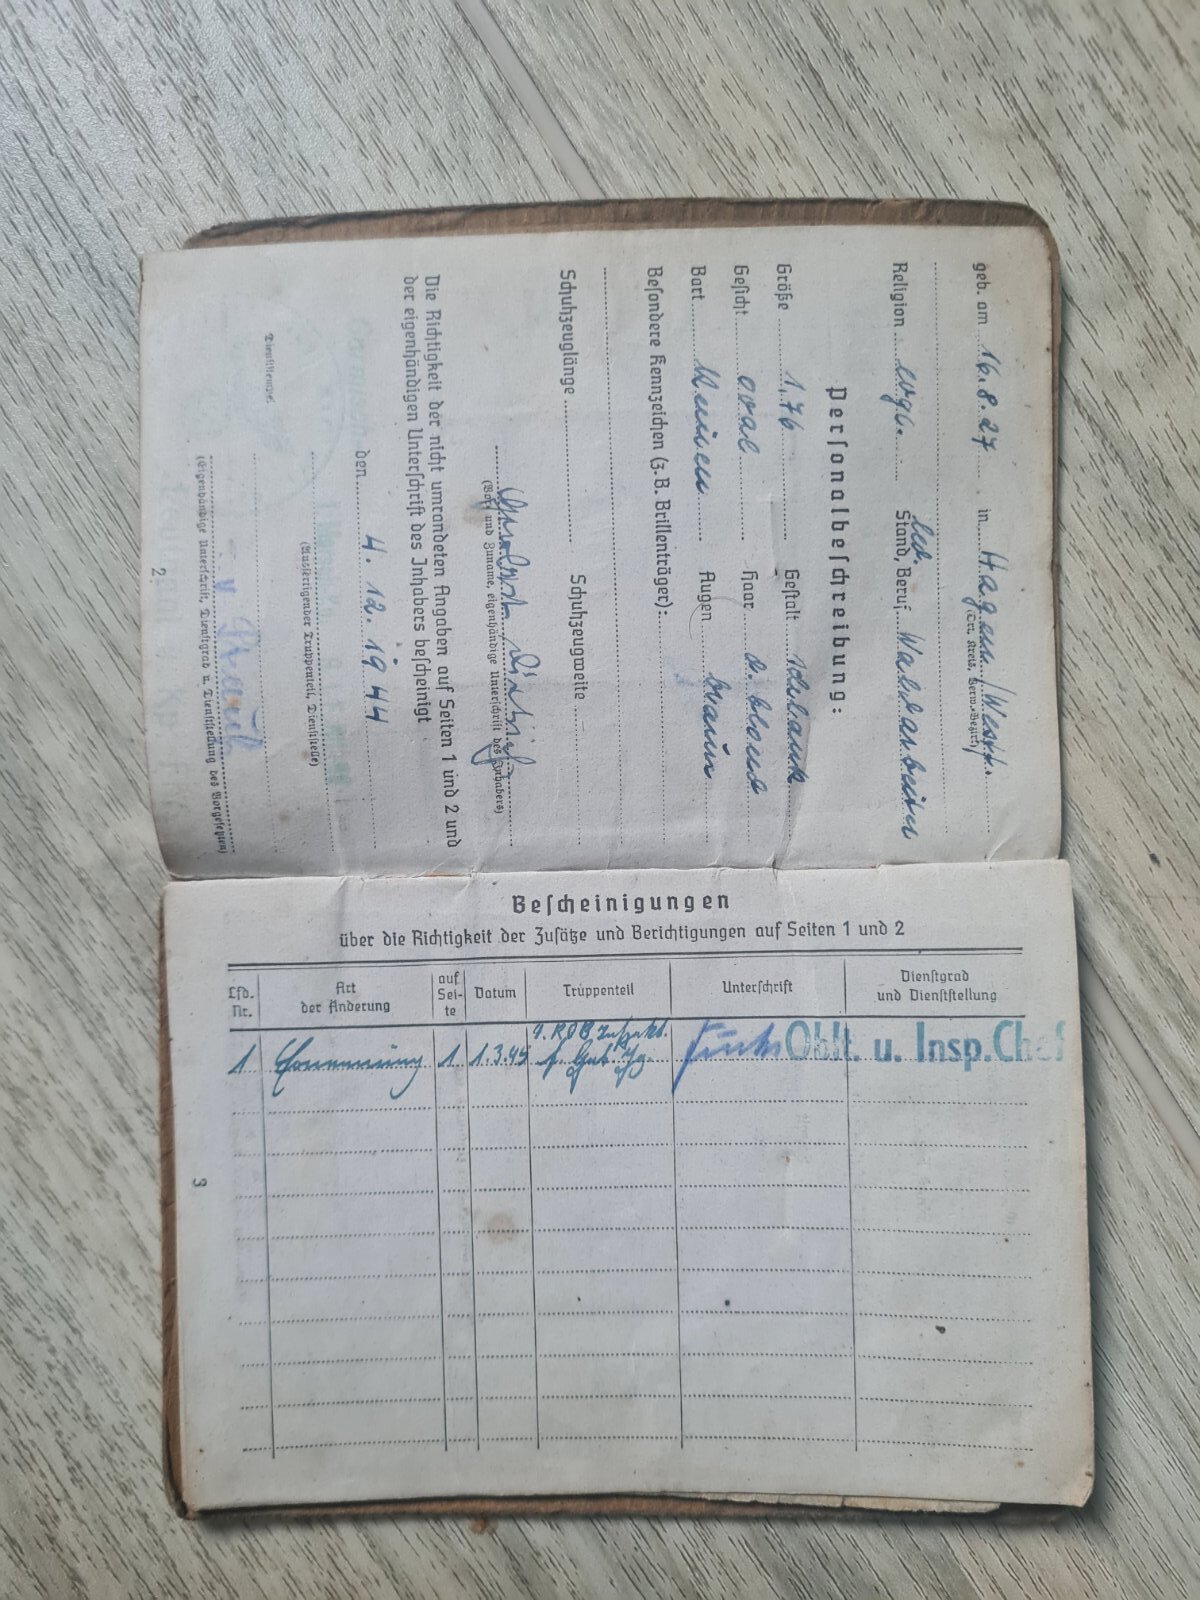 geb. am 16.8.27 in Hagem/Westf.
(Ort, Kreis, Verw.-Bezirk)
led.
Religion evgl. Stand, Beruf Waldarbeiter
Personalbeſchreibung:
Größe 1,76 Geſtalt schlank
Geſicht oval Haar d. blond
Bart keinen Augen braun
Beſondere Kennzeichen (z.B. Brillenträger):
Schuhzeuglänge Schuhzeugweite
(Vor- und Zuname, eigenhändige Unterſchrift des Inhabers)
Die Richtigkeit der nicht umrandeten Angaben auf Seiten 1 und 2 und
der eigenhändigen Unterſchrift des Inhabers beſcheinigt
den 4.12.1944
(Ausfertigender Truppenteil, Dienſtſtelle)
Dienſtſtempel
(Eigenhändige Unterſchrift, Dienſtgrad u. Dienſtſtellung des Vorgeſetzten)
2
Beſcheinigungen
über die Richtigkeit der Zuſätze und Berichtigungen auf Seiten 1 und 2
Lfd. Nr. Art der Änderung auf Sei- te Datum Truppenteil Unterſchrift Dienſtgrad und Dienſtſtellung
1 Ernennung 1 1.3.45 Oblt. u. Insp.Chef
3